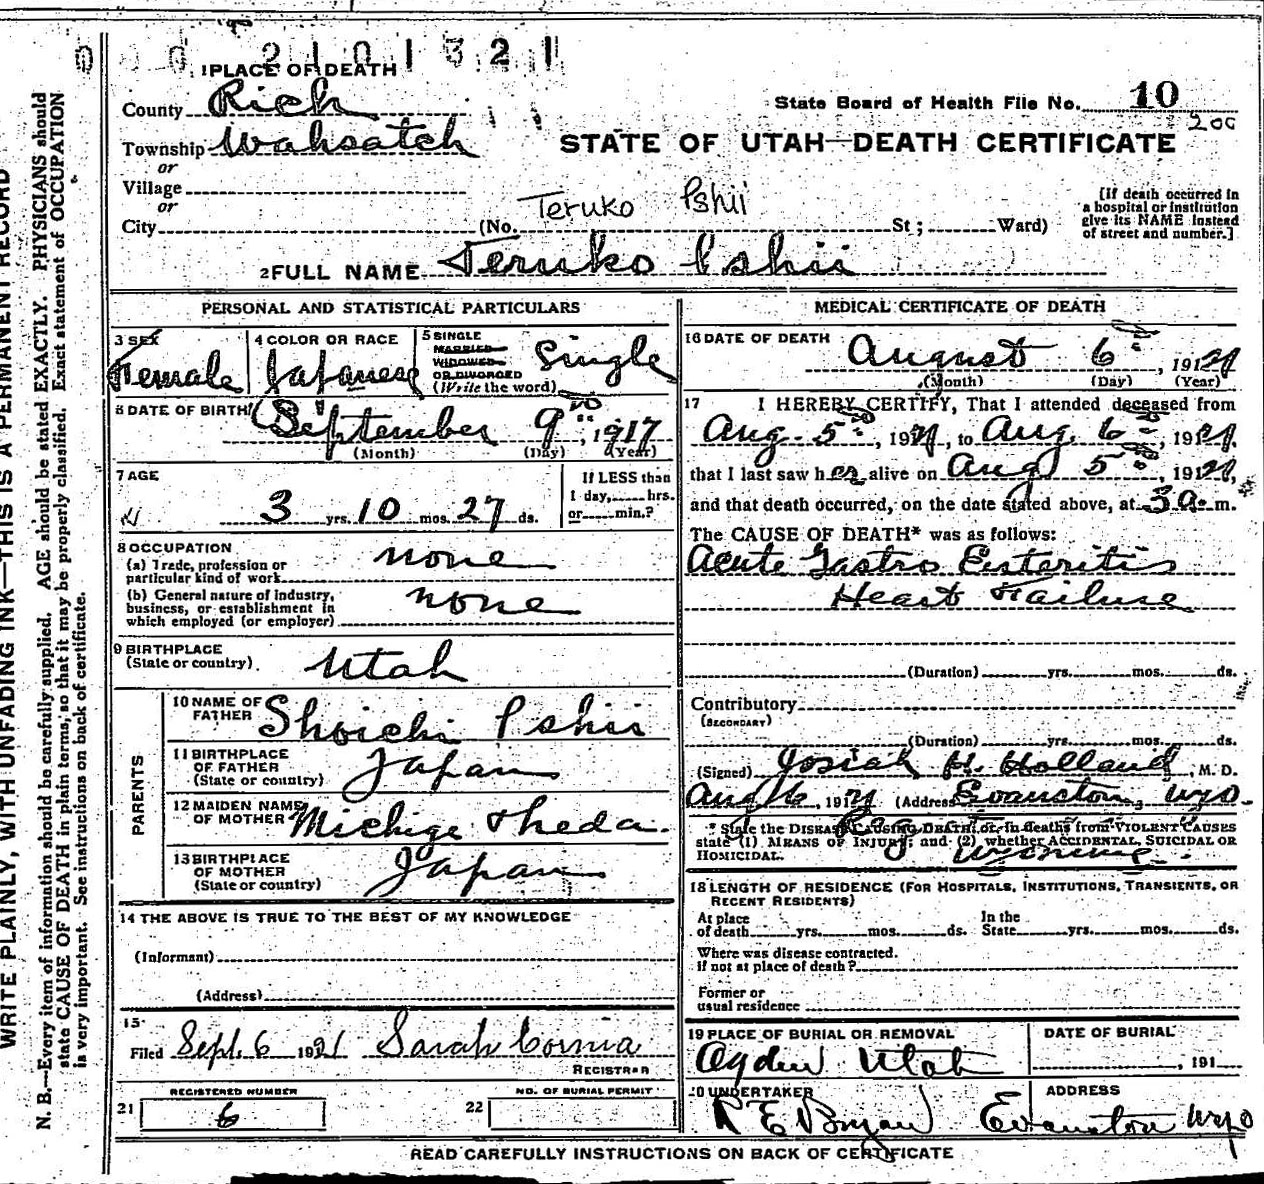 2101321
1 PLACE OF DEATH
County Rich
State Board of Health File No. 10
200
Township Wahsatch
or
STATE OF UTAH—DEATH CERTIFICATE
Village
or
City (No. Teruko Ishii St; Ward)
[If death occurred in
a hospital or institution
give its NAME instead
of street and number.]
2 FULL NAME Teruko Ishii
PERSONAL AND STATISTICAL PARTICULARS
3 SEX
Female
4 COLOR OR RACE
Japanese
5 SINGLE
MARRIED
WIDOWED
OR DIVORCED
(Write the word)
Single
6 DATE OF BIRTH
September 9th, 1917
(Month) (Day) (Year)
7 AGE
3 yrs. 10 mos. 27 ds.
If LESS than
1 day, hrs.
or min.?
8 OCCUPATION
(a) Trade, profession or
particular kind of work none
(b) General nature of industry,
business, or establishment in
which employed (or employer) none
9 BIRTHPLACE
(State or country) Utah
PARENTS
10 NAME OF
FATHER Shoichi Ishii
11 BIRTHPLACE
OF FATHER
(State or country) Japan
12 MAIDEN NAME
OF MOTHER Michige Iheda.
13 BIRTHPLACE
OF MOTHER
(State or country) Japan
14 THE ABOVE IS TRUE TO THE BEST OF MY KNOWLEDGE
(Informant)
(Address)
15
Filed Sept. 6 1921 Sarah Cornia
REGISTRAR
REGISTERED NUMBER
21 6
NO. OF BURIAL PERMIT
22
MEDICAL CERTIFICATE OF DEATH
16 DATE OF DEATH
August 6th, 1921
(Month) (Day) (Year)
17 I HEREBY CERTIFY, That I attended deceased from
Aug. 5th, 1921, to Aug. 6th, 1921,
that I last saw her alive on Aug 5th, 1921,
and that death occurred, on the date stated above, at 3 a. m.
The CAUSE OF DEATH* was as follows:
Acute Gastro Enteritis
Heart Failure
(Duration) yrs. mos. ds.
Contributory
(SECONDARY)
(Duration) yrs. mos. ds.
(Signed) Josiah H. Holland, M. D.
Aug 6, 1921 (Address Evanston, Wyo.
* State the DISEASE CAUSING DEATH, or, in deaths from VIOLENT CAUSES
state (1) MEANS OF INJURY; and (2) whether ACCIDENTAL, SUICIDAL OR
HOMICIDAL.
Wyoming.
18 LENGTH OF RESIDENCE (FOR HOSPITALS, INSTITUTIONS, TRANSIENTS, OR
RECENT RESIDENTS)
At place
of death yrs. mos. ds.
In the
State yrs. mos. ds.
Where was disease contracted.
if not at place of death?
Former or
usual residence
19 PLACE OF BURIAL OR REMOVAL
Ogden Utah
DATE OF BURIAL
, 191
20 UNDERTAKER
R E Bryan
ADDRESS
Evanston Wyo
READ CAREFULLY INSTRUCTIONS ON BACK OF CERTIFICATE
WRITE PLAINLY, WITH UNFADING INK—THIS IS A PERMANENT RECORD
N. B.—Every item of information should be carefully supplied. AGE should be stated EXACTLY. PHYSICIANS should
state CAUSE OF DEATH in plain terms, so that it may be properly classified. Exact statement of OCCUPATION
is very important. See instructions on back of certificate.